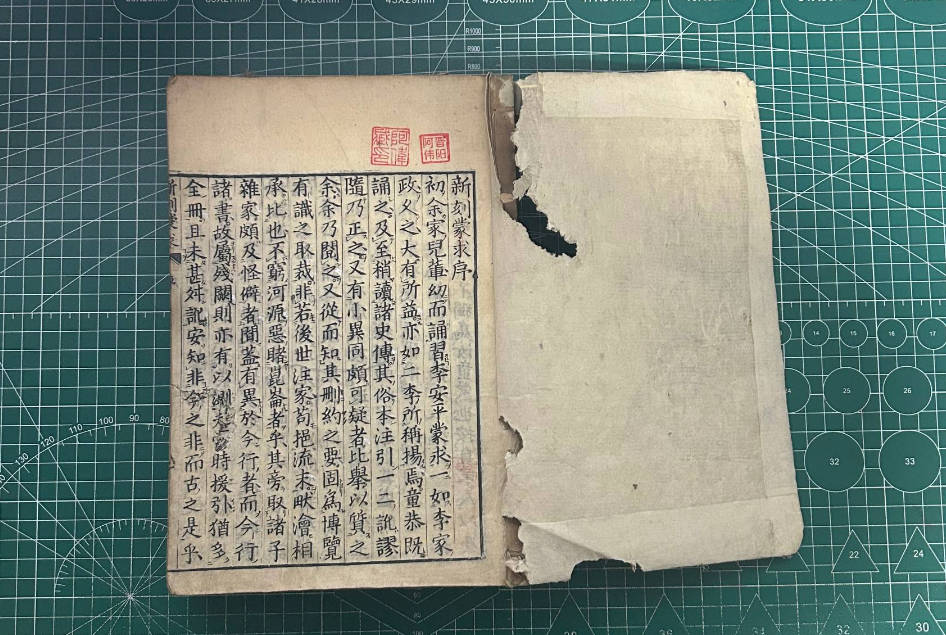 新刻蒙求序
初余家兒輩幼而誦習李安平蒙求一如李家
政父之大有所益亦如二李所稱揚焉童恭既
誦之及至稍讀諸史傳其俗本注引一二訛謬
隨乃正之又有小異同頗可疑者比舉以質之
余余乃閱之又從而知其刪約之要固爲博覽
有識之取裁非若後世注家苟挹流末畎澮相
承比也不窮河源惡睹崑崙者乎其旁取諸子
雜家頗及怪僻者聞蓋有異於今行者而今行
諸書故屬殘闕則亦有以測時援引猶多
全冊且未甚舛訛安知非今之非而古之是乎
R1000
R900
R800
14
16
17
24
25
26
32
33
22
24
30
130
120
110
100
90
80